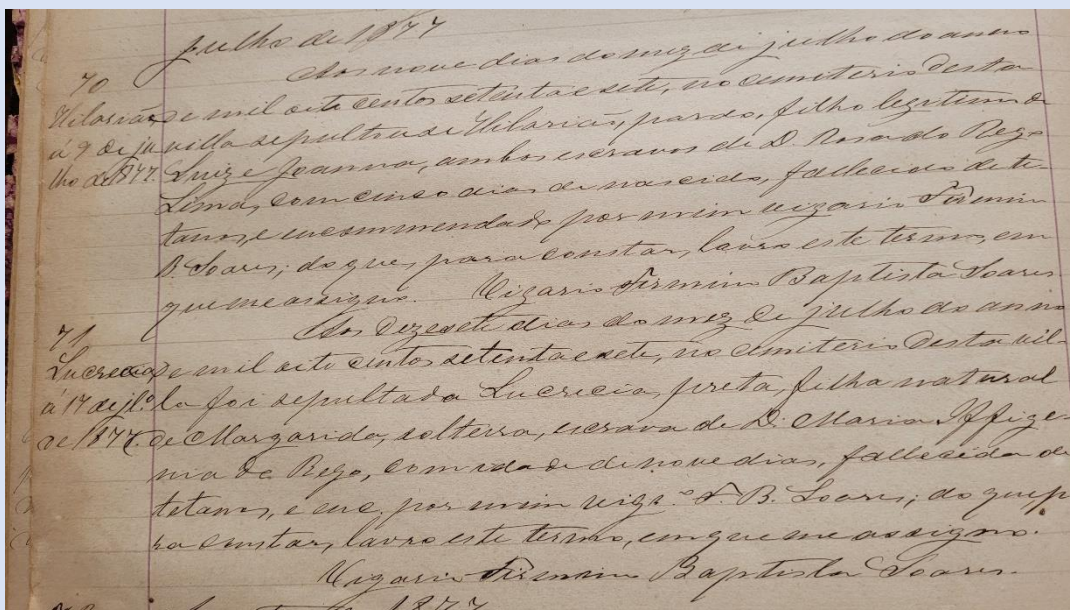 Julho de 1877
70
Hilarião
á 9 de ju
lho de 1877.
Aos nove dias do mez de julho do anno
de mil oito centos setenta e sete, no cemiterio desta
villa sepultou-se Hilarião, pardo, filho legitimo de
Luiz e Joanna, ambos escravos de D. Rosa do Rego
Lima, com cinco dias de nascido, fallecido de te-
tanos, e encommendado por mim vigario Firmin
B. Soares; do que, para constar, lavro este termo, em
que me assigno. Vigario Firmino Baptista Soares
71
Lucrecia
á 17 de jlº
de 1877.
Aos dezesete dias do mez de julho do anno
de mil oito centos setenta e sete, no cemiterio desta vil-
la foi sepultada Lucrecia, preta, filha natural
de Margarida, solteira, escrava de D. Maria Iffige-
nia do Rego, com idade de nove dias, fallecida de
tetanos, e enc. por mim vigrº F. B. Soares; do que, p
ra constar, lavro este termo, em que me assigno.
Vigario Firmino Baptista Soares.
1877